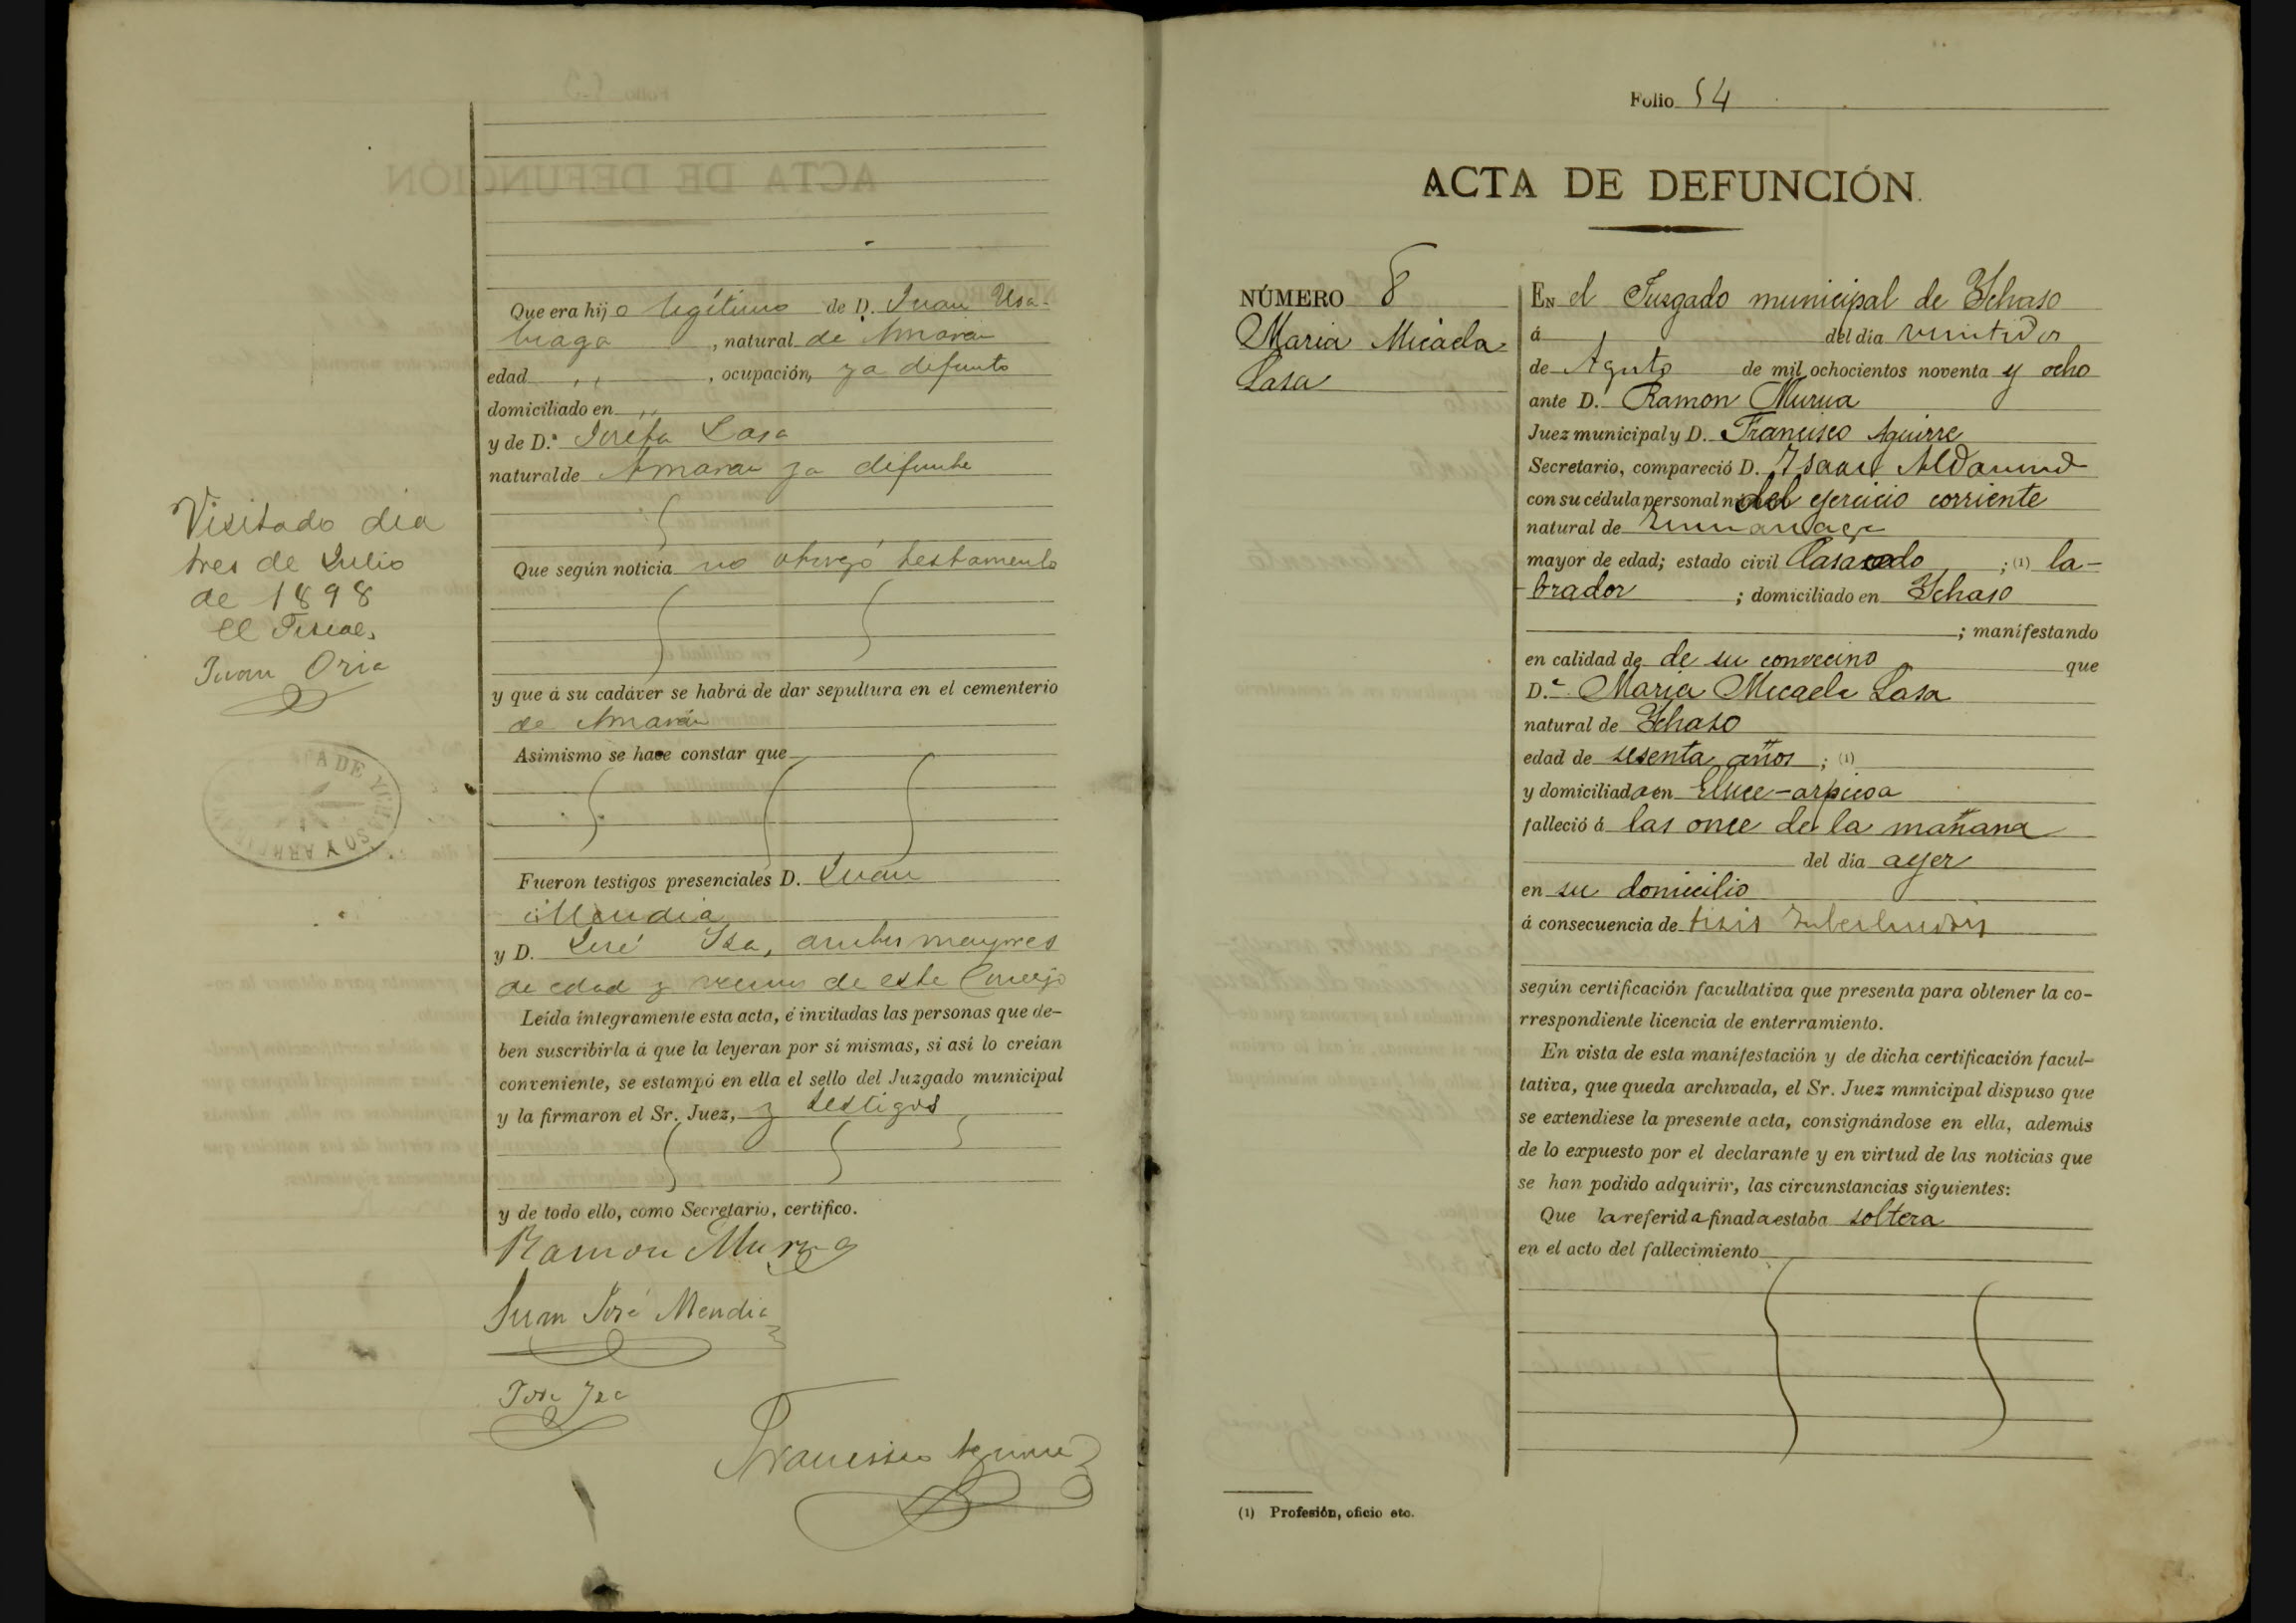 Que era hijo legítimo de D. Juan Usa-
biaga, natural de Amarau
edad ,, , ocupación, ya defunto
domiciliado en ,,
y de D.ª Josefa Lasa
natural de Amarau ya difunta
Que según noticia no otorgó testamento
y que á su cadáver se habrá de dar sepultura en el cementerio
de Amarau
Asimismo se hace constar que
Fueron testigos presenciales D. Juan
Mendia
y D. José Iza, ambos mayores
de edad y vecinos de este Concejo
Leída íntegramente esta acta, é invitadas las personas que de-
ben suscribirla á que la leyeran por sí mismas, si así lo creían
conveniente, se estampó en ella el sello del Juzgado municipal
y la firmaron el Sr. Juez, y testigos
y de todo ello, como Secretario, certifico.
Ramon Murua
Juan José Mendia
Jose Iza
Francisco Aguirre
Visitado dia
tres de Julio
de 1898
El Fiscal,
Juan Oria
Folio 54
ACTA DE DEFUNCIÓN.
NÚMERO 8
Maria Micaela
Lasa
EN el Juzgado municipal de Ychaso
á del día veintidos
de Agosto de mil ochocientos noventa y ocho
ante D. Ramon Murua
Juez municipal y D. Francisco Aguirre
Secretario, compareció D. Isaac
con su cédula personal del ejercicio corriente
natural de
mayor de edad; estado civil Casado ; (1) la-
brador ; domiciliado en Ychaso
; manifestando
en calidad de de su convecino que
D.ª Maria Micaela Lasa
natural de Ychaso
edad de sesenta años ; (1)
y domiciliada en
falleció á las once de la mañana
del día ayer
en su domicilio
á consecuencia de tisis
según certificación facultativa que presenta para obtener la co-
rrespondiente licencia de enterramiento.
En vista de esta manifestación y de dicha certificación facul-
tativa, que queda archivada, el Sr. Juez mnnicipal dispuso que
se extendiese la presente acta, consignándose en ella, además
de lo expuesto por el declarante y en virtud de las noticias que
se han podido adquirir, las circunstancias siguientes:
Que la referida finada estaba soltera
en el acto del fallecimiento
(1) Profesión, oficio etc.